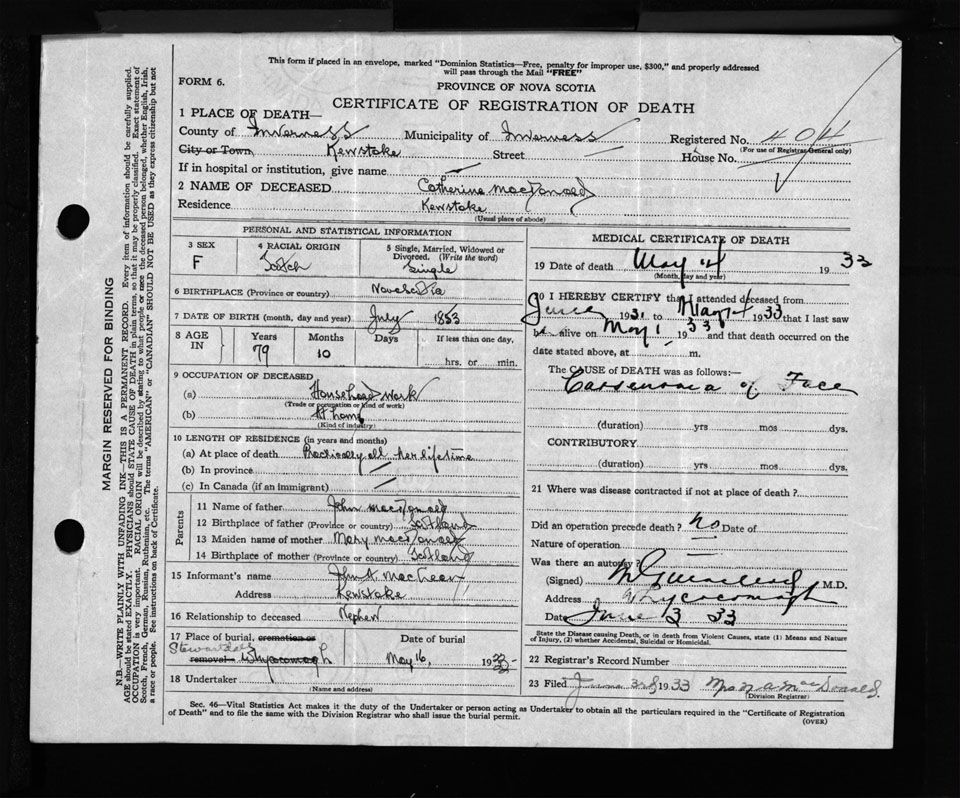 This form if placed in an envelope, marked "Dominion Statistics—Free, penalty for improper use, $300," and properly addressed
will pass through the Mail "FREE"
FORM 6.
PROVINCE OF NOVA SCOTIA
CERTIFICATE OF REGISTRATION OF DEATH
1 PLACE OF DEATH—
County of Inverness Municipality of Inverness Registered No. 404
(For use of Registrar General only)
City or Town, Kewstoke Street House No.
If in hospital or institution, give name
2 NAME OF DECEASED Catherine MacDonald
Residence Kewstoke
(Usual place of abode)
PERSONAL AND STATISTICAL INFORMATION
3 SEX 4 RACIAL ORIGIN 5 Single, Married, Widowed or
Divorced. (Write the word)
F Scotch Single
6 BIRTHPLACE (Province or country) Nova Scotia
7 DATE OF BIRTH (month, day and year) July 1853
8 AGE IN Years Months Days If less than one day,
79 10 hrs. or min.
9 OCCUPATION OF DECEASED
(a) Household Work
(Trade or occupation or kind of work)
(b) At home
(Kind of industry)
10 LENGTH OF RESIDENCE (in years and months)
(a) At place of death Practically all her lifetime
(b) In province
(c) In Canada (if an immigrant)
Parents
11 Name of father John MacDonald
12 Birthplace of father (Province or country) Scotland
13 Maiden name of mother Mary MacDonald
14 Birthplace of mother (Province or country) Scotland
15 Informant's name John A MacLean
Address Kewstoke
16 Relationship to deceased Nephew
17 Place of burial, cremation or Date of burial
removal Whycocomagh May 16, 1933
18 Undertaker
(Name and address)
MEDICAL CERTIFICATE OF DEATH
19 Date of death May 14 1933
(Month, day and year)
20 I HEREBY CERTIFY that I attended deceased from
June 1931 to May 14 1933 that I last saw
alive on May 1 1933 and that death occurred on the
date stated above, at m.
The CAUSE OF DEATH was as follows:—
Carsenoma of Face
(duration) yrs mos dys.
CONTRIBUTORY
(duration) yrs mos dys.
21 Where was disease contracted if not at place of death?
Did an operation precede death? No Date of
Nature of operation
Was there an autopsy?
(Signed) M.D.
Address Whycocomagh
Date June 3 33
State the Disease causing Death, or in death from Violent Causes, state (1) Means and Nature
of Injury, (2) whether Accidental, Suicidal or Homicidal.
22 Registrar's Record Number
23 Filed June 3rd 1933 Mrs N A MacDonald.
(Division Registrar)
Sec. 46—Vital Statistics Act makes it the duty of the Undertaker or person acting as Undertaker to obtain all the particulars required in the "Certificate of Registration
of Death" and to file the same with the Division Registrar who shall issue the burial permit.
(OVER)
MARGIN RESERVED FOR BINDING
N.B.—WRITE PLAINLY WITH UNFADING INK—THIS IS A PERMANENT RECORD. Every item of information should be carefully supplied.
AGE should be stated EXACTLY. PHYSICIANS should STATE CAUSE OF DEATH in plain terms, so that it may be properly classified. Exact statement of
OCCUPATION is very important. RACIAL ORIGIN will be described by stating to what people or race the deceased person belonged, whether English, Irish,
Scotch, French, German, Russian, Ruthenian, etc. The terms "AMERICAN" or "CANADIAN" SHOULD NOT BE USED as they express citizenship but not
a race or people. See instructions on back of Certificate.